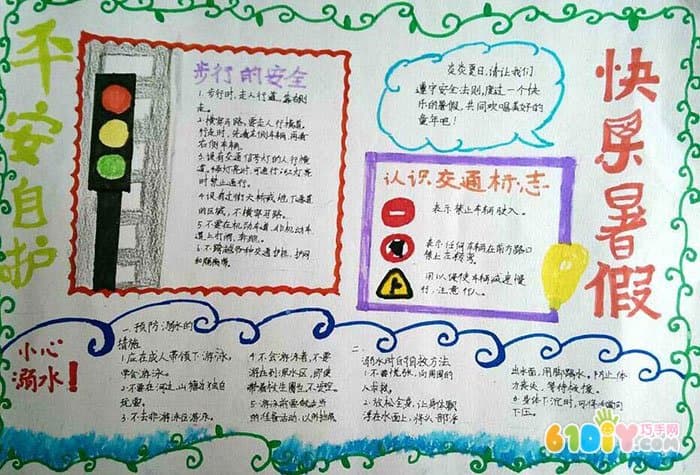 平安自护
快乐暑假
步行的安全
1.步行时,走人行道,靠右侧
走。
2.横穿马路,要走人行横道,
行走时,先看左侧车辆,再看
右侧车辆。
3.没有交通信号灯的人行横
道,绿灯亮时,可通行;红灯亮
时禁止通行。
4.设有过街天桥或地下通道
的区域,不横穿马路。
5.不要在机动车道、非机动车
道上打闹、奔跑。
6.不跨越各种交通护栏、护网
和隔离带。
炎炎夏日,请让我们
遵守安全法则,度过一个快
乐的暑假,共同欢唱美好的
童年吧!
认识交通标志
表示禁止车辆驶入。
表示任何车辆在前方路口
禁止右转弯
用以促使车辆减速慢
行,注意行人。
小心
溺水!
一、预防溺水的
措施
1.应在成人带领下游泳,
学会游泳。
2.不要在河边、山塘边独自
玩耍。
3.不去非游泳区游泳。
4.不会游泳者,不要
游在到深水区,即使
带着救生圈也不安全。
5.游泳前要做适当
的准备活动,以防抽筋
二、溺水时的自救方法
1.不要慌张,向周围的
人求救。
2.放松全身,让身体飘
浮在水面上,将头部浮
出水面,用脚踢水,防止体
力丧失,等待救援。
3.身体下沉时,可将手掌向
下压。
61DIY巧手网
61diy.com